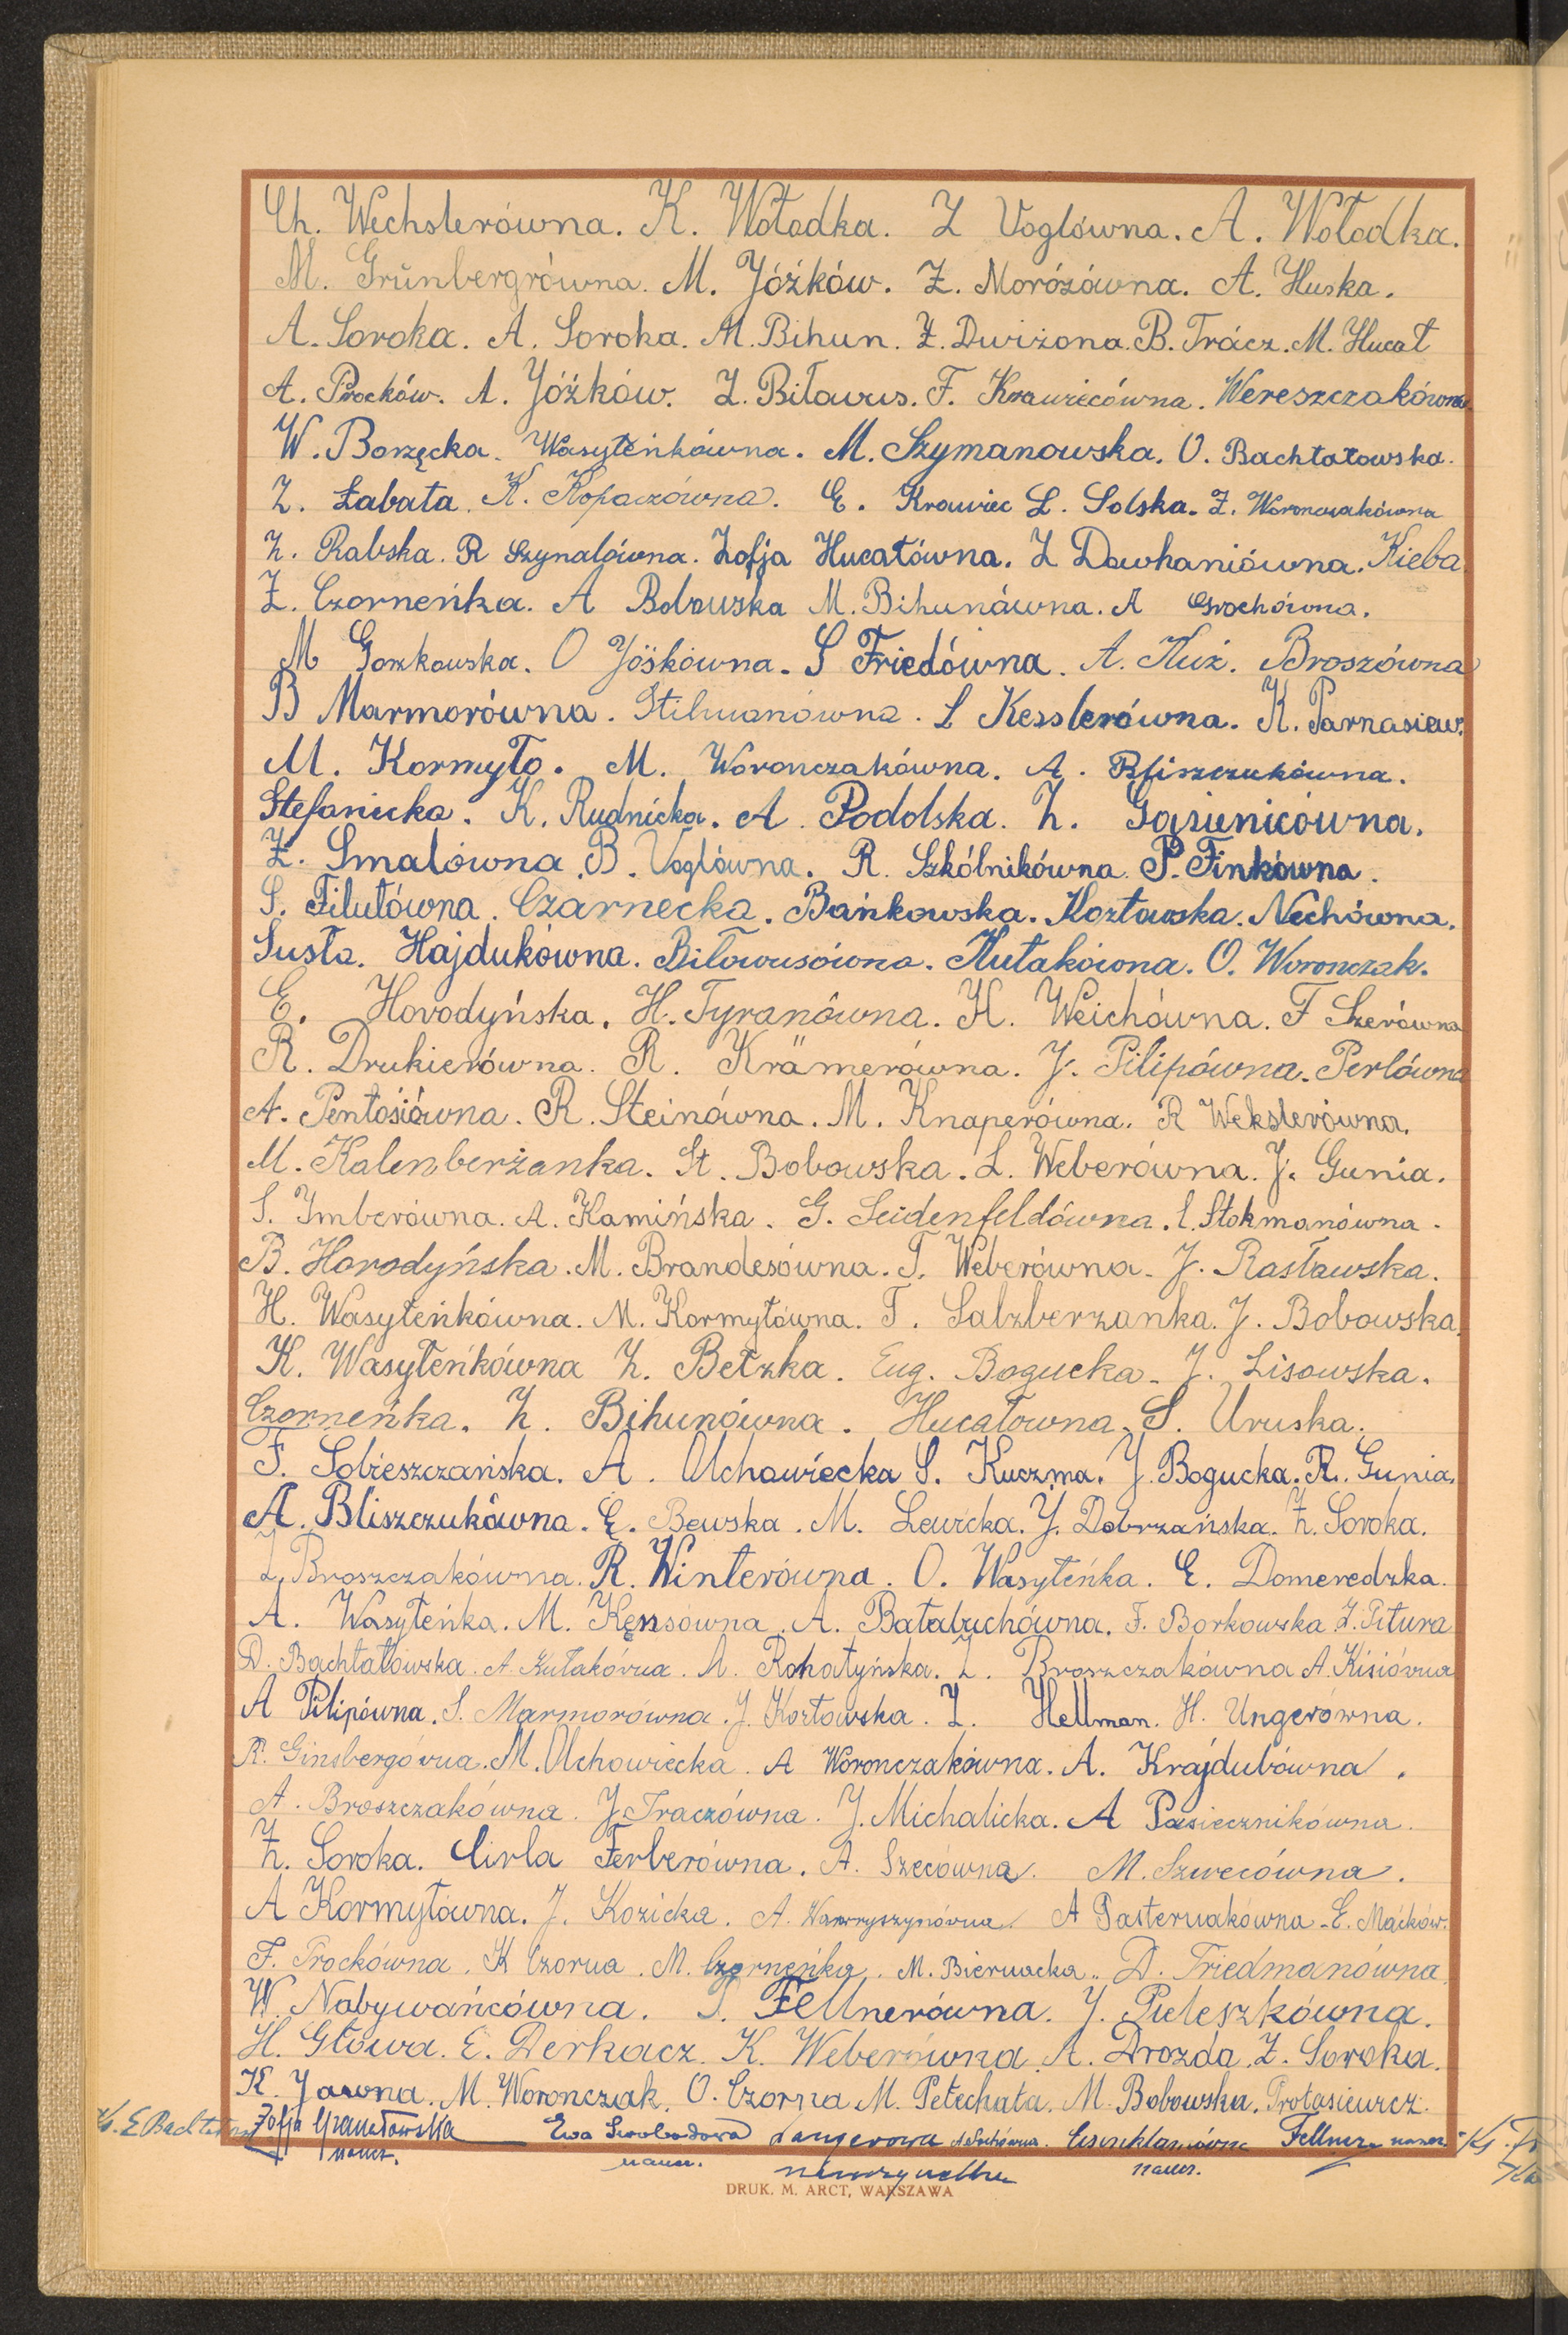 Ch. Wechslerówna. K. Wołodka. Z Voglówna. A. Wołodka.
M. Grünbergrówna. M. Jóźków. Z. Morózówna. A. Huska.
A. Soroka. A. Soroka. M. Bihun. Z. Dwiżona. B. Trácz. M. Hucał
A. Procków. A. Jóźków. Z. Biłowus. F. Krawiecówna. Wereszczakówna
W. Borzęcka. Wasyleńkówna. M. Szymanowska. O. Bachtałowska.
Z. Łabata. K. Kopaczówna. E. Krawiec L. Solska. Z. Woronczakówna
Z. Rabska. R Szynalówna. Zofja Hucałówna. Z Dowhaniówna. Kieba
Z. Czorneńka. A Bobowska M. Bihunówna. A Grochówna.
M Gorzkowska. O Jóśkówna. S Friedówna. A. Kuź. Broszówna
B Marmorówna. Stilmanówna. L Kesslerówna. K. Parnasiew.
M. Kormyło. M. Woronczakówna. A. Bliszczukówna.
Stefanicka. K. Rudnicka. A. Podolska. Z. Gąsienicówna.
Z. Smalówna. B. Voglówna. R. Szkólnikówna. P. Finkówna.
S. Filutówna. Czarnecka. Bańkowska. Kozłowska. Nechówna.
Susła. Hajdukówna. Biłowusówna. Kułakówna. O. Woronczak.
E. Horodyńska. H. Tyranówna. K. Weichówna. F Szerówna
R. Drukierówna. R. Krämerówna. J. Pilipówna. Perlówna
A. Pentosiówna. R. Steinówna. M. Knaperówna. R Wekslerówna.
M. Kalenberżanka. St. Bobowska. L. Weberówna. J. Gunia.
S. Imberówna. A. Kamińska. G. Seidenfeldówna. C. Stokmanówna.
B. Horodyńska. M. Brandesówna. T. Weberówna. J. Rasławska.
H. Wasyleńkówna. M. Kormyłówna. T. Salzberzanka. J. Bobowska.
K. Wasyleńkówna Z. Bełzka. Eug. Bogucka. J. Lisowska.
Czorneńka. Z. Bihunówna. Hucałowna. S. Uruska.
F. Sobieszczańska. A. Olchowiecka S. Kuczma. J. Bogucka. R. Gunia.
A. Bliszczukówna. E. Bewska. M. Lewicka. J. Dobrzańska. Z. Soroka.
Z. Broszczakówna. R. Winterówna. O. Wasyleńka. E. Domeredzka.
A. Wasyleńka. M. Kęnsówna. A. Bałabuchówna. F. Borkowska. Z. Pitura
D. Bachtałowska. A. Kułakówna. M. Rohatyńska. Z. Broszczakówna A. Kisiówna
A Pilipówna. S. Marmorówna. J. Kozłowska. Z. Hellman. H. Ungerówna.
R. Ginsbergówna. M. Olchowiecka. A Woronczakówna. A. Krajdubówna.
A. Broszczakówna. J. Traczówna. J. Michalicka. A Pasiecznikówna.
Z. Soroka. Cirla Ferberówna. A. Szecówna. M. Szwecówna.
A Kormyłówna. J. Kozicka. A. Wawryszynówna. A Pasternakówna. E. Maików.
F. Prockówna. K Czorna. M. Czorneńka. M. Biernacka. D. Friedmanówna
W. Nabywańcówna. S. Fellnerówna. J. Puleszkówna.
H. Głowa. E. Derkacz. K. Weberówna. A. Drozda. Z. Soroka.
K. Jawna. M. Woronczak. O. Czorna M. Petechata. M. Bobowska. Protasiewicz.
Zofja Granatowska Ewa Swobodowa Langerowa Fellner naucz.
naucz. naucz. nauczycielka naucz.
DRUK. M. ARCT, WARSZAWA